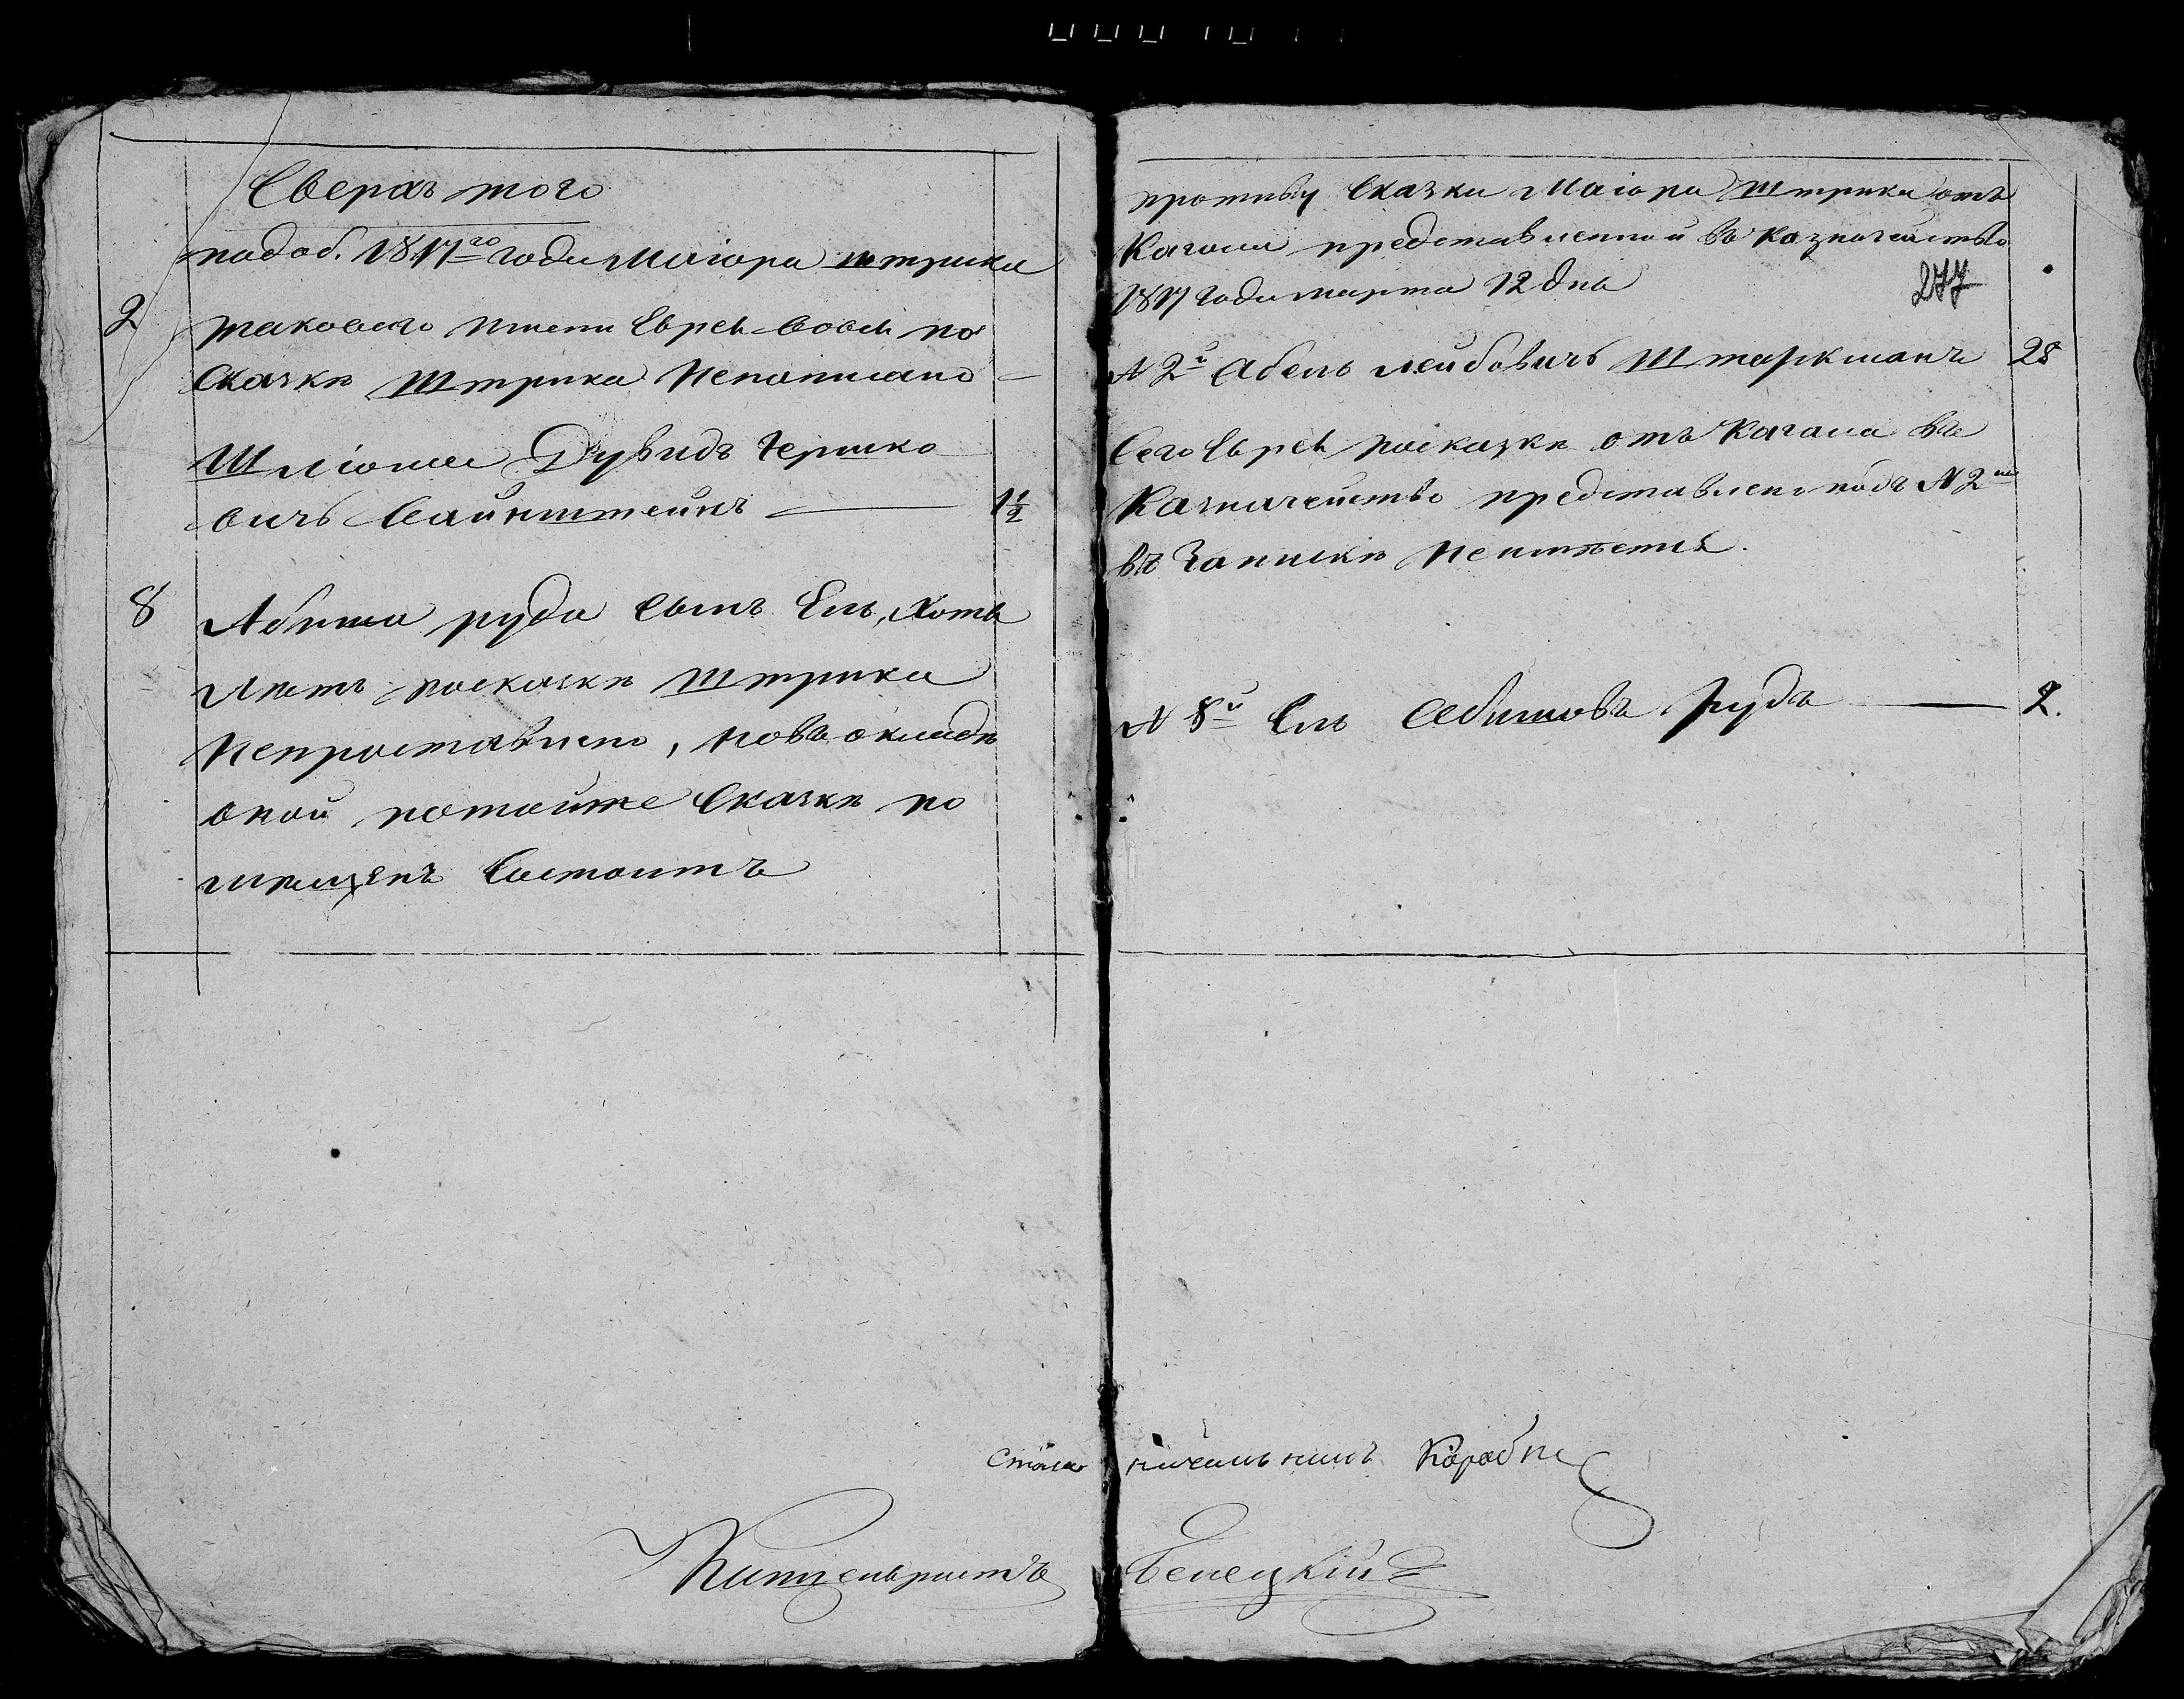 Сверхъ того
под об. 1817го года Маіора штрика
2 таковаго имени Еврей вовсе по
Сказкѣ Штрика Непописано —
Шліома Дувидъ Гершко
вичъ Вайнштейнъ — 1 1/2
8 Абиша руда Сынъ Ель, Хотя
Лѣтъ посказкѣ штрика
Непроставлено, новъ окладѣ
оной потойже Сказкѣ по
мѣщенъ Состоитъ
противу Сказки Маіора Штрика отъ
Кагала представленной въ Казначейство
1817 года марта 12 дня
277
N 2й Абель Лейбовичъ Штаркманъ 28
Сего Еврея посказкѣ отъ Кагала въ
Казначейство представлено подъ N 2мъ
въ Запискѣ Неимѣется.
N 8й Ель Абишовъ Рудъ — 2.
Столоначальникъ
Канцеляристъ Бенецкій